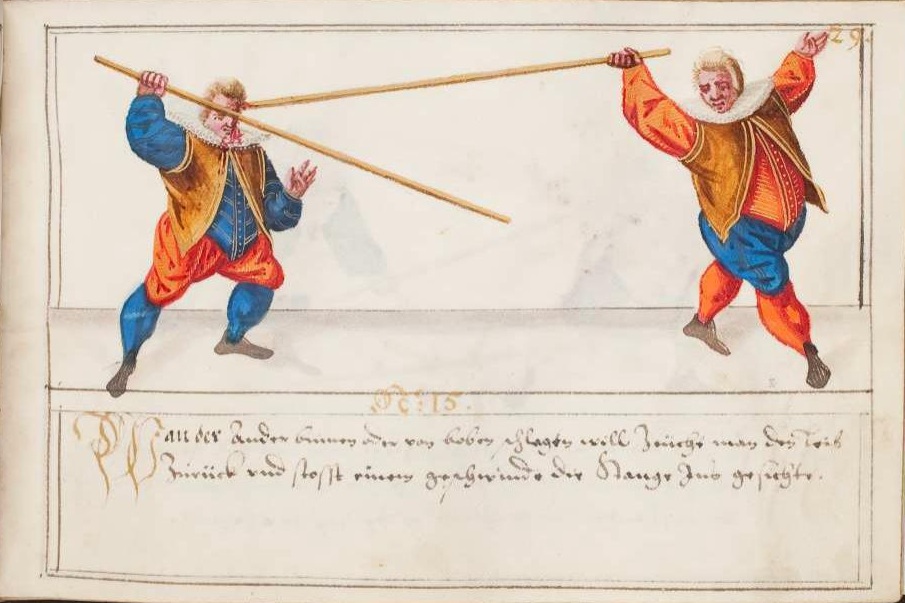 29.
No: 15.
Wan der Ander binnen oder von boben schlagen will Zeüche man den Leib
Zurück vnd stosst einem geschwinde die Stange Ins gesichte.